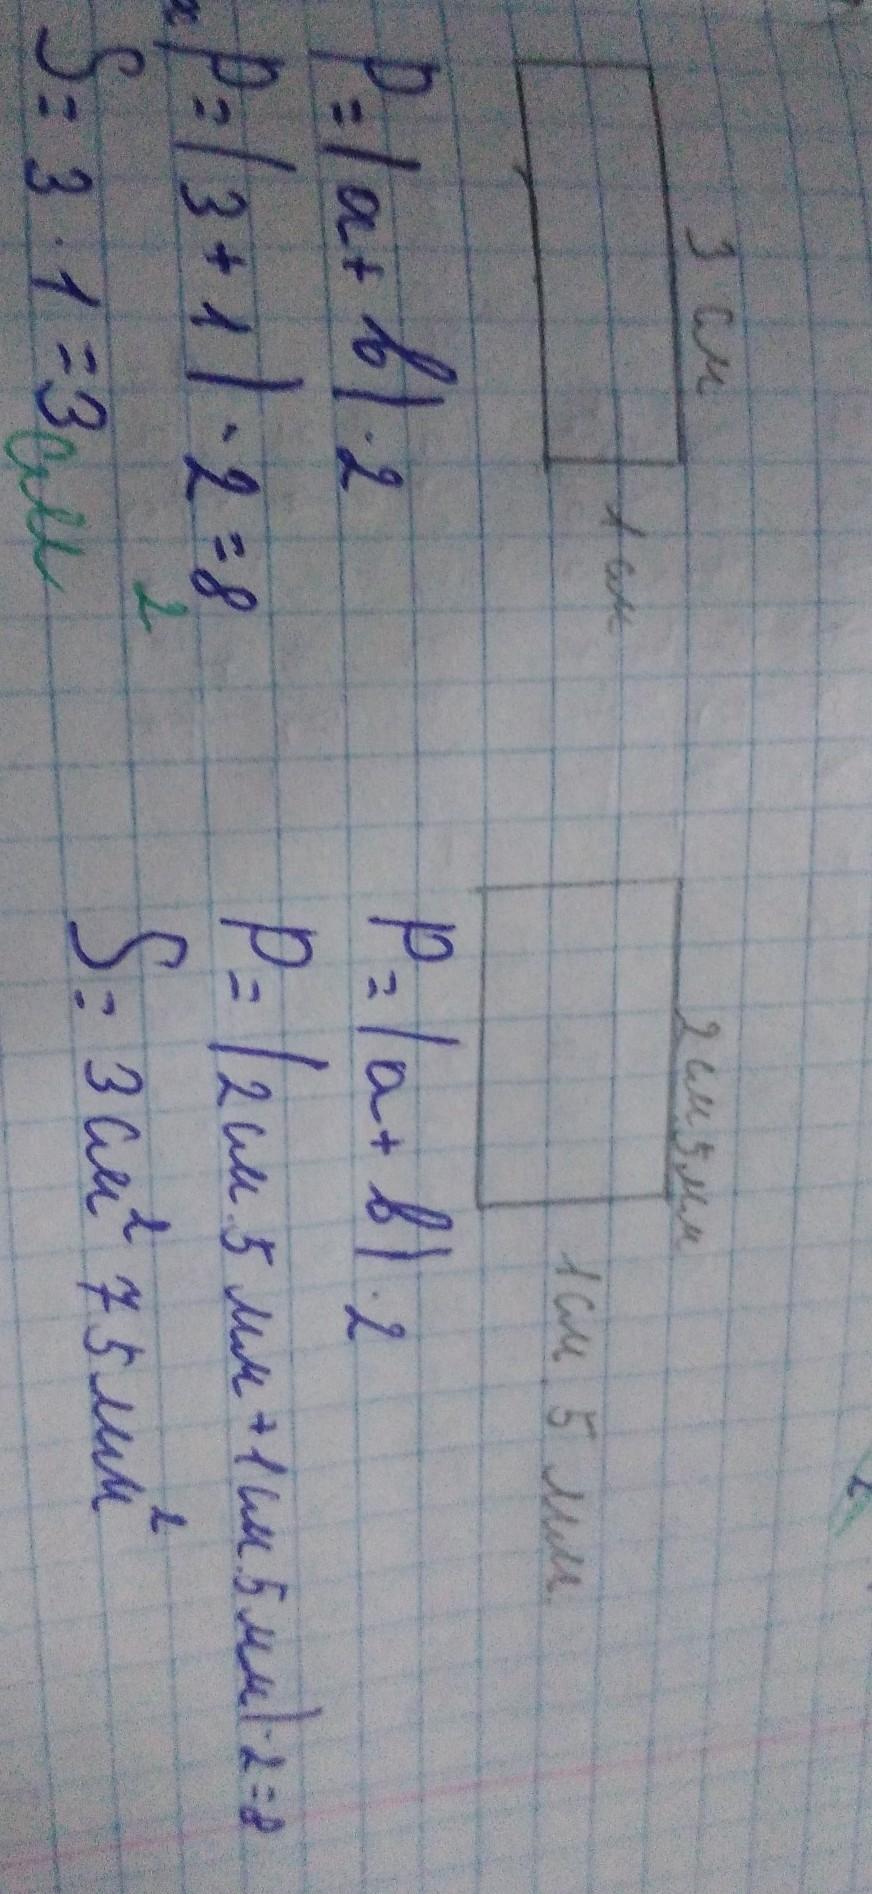 3 см
1 см
P=(a+b)·2
P=(3+1)·2=8
S=3·1=3см²
2 см 5 мм
1 см 5 мм
P=(a+b)·2
P=(2 см 5 мм+1 см 5 мм)·2=8
S=3 см² 75 мм²